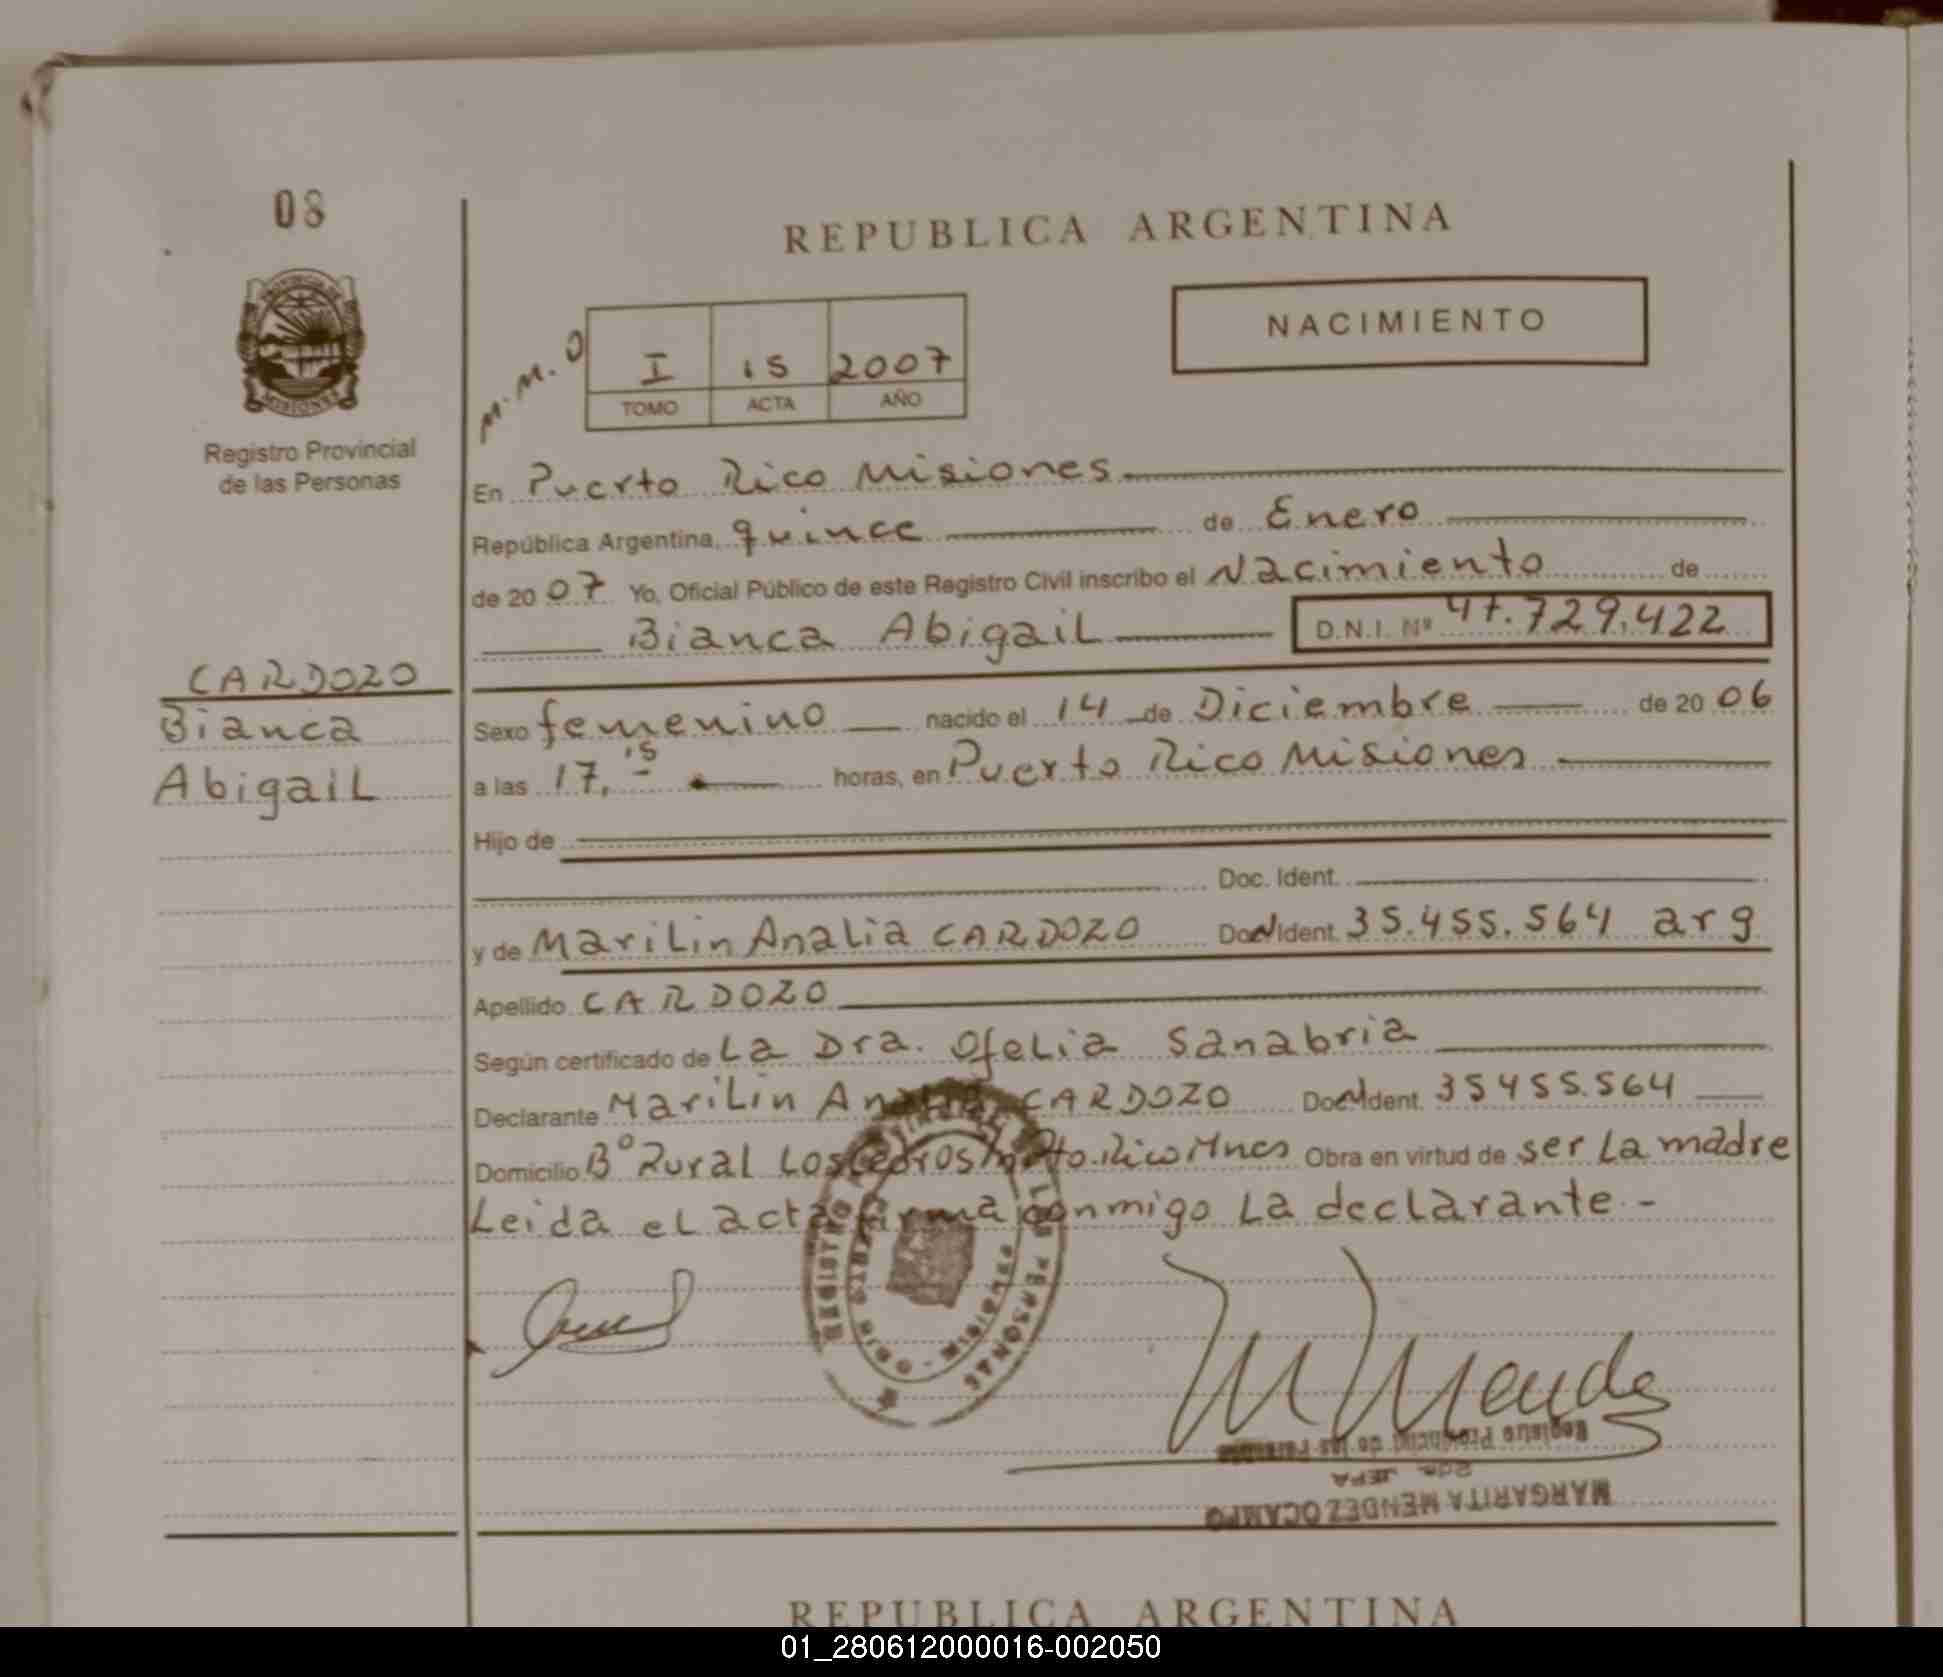 08
REPUBLICA ARGENTINA
PROVINCIA DE
MISIONES
NACIMIENTO
M.M.O
I 15 2007
TOMO ACTA AÑO
Registro Provincial
de las Personas
En Puerto Rico Misiones
República Argentina, quince de Enero
de 2007 Yo, Oficial Público de este Registro Civil inscribo el Nacimiento de
Bianca Abigail D.N.I. Nº 47.729.422
CARDOZO
Bianca
Abigail
Sexo femenino nacido el 14 de Diciembre de 2006
a las 17,15 horas, en Puerto Rico Misiones
Hijo de
Doc. Ident.
y de Marilin Analia CARDOZO Doc. Ident. 35.455.564 arg
Apellido CARDOZO
Según certificado de La Dra. Ofelia Sanabria
Declarante Marilin Analia CARDOZO Doc. Ident. 35455.564
Domicilio Bº Rural Los Cedros Pto. Rico Mnes Obra en virtud de ser La madre
Leida el acta firma conmigo La declarante.-
REGISTRO PROVINCIAL DE LAS PERSONAS
M Mendez
Registro Provincial de las Personas
2da. JEFA
MARGARITA MENDEZ OCAMPO
REPUBLICA ARGENTINA
01_280612000016-002050